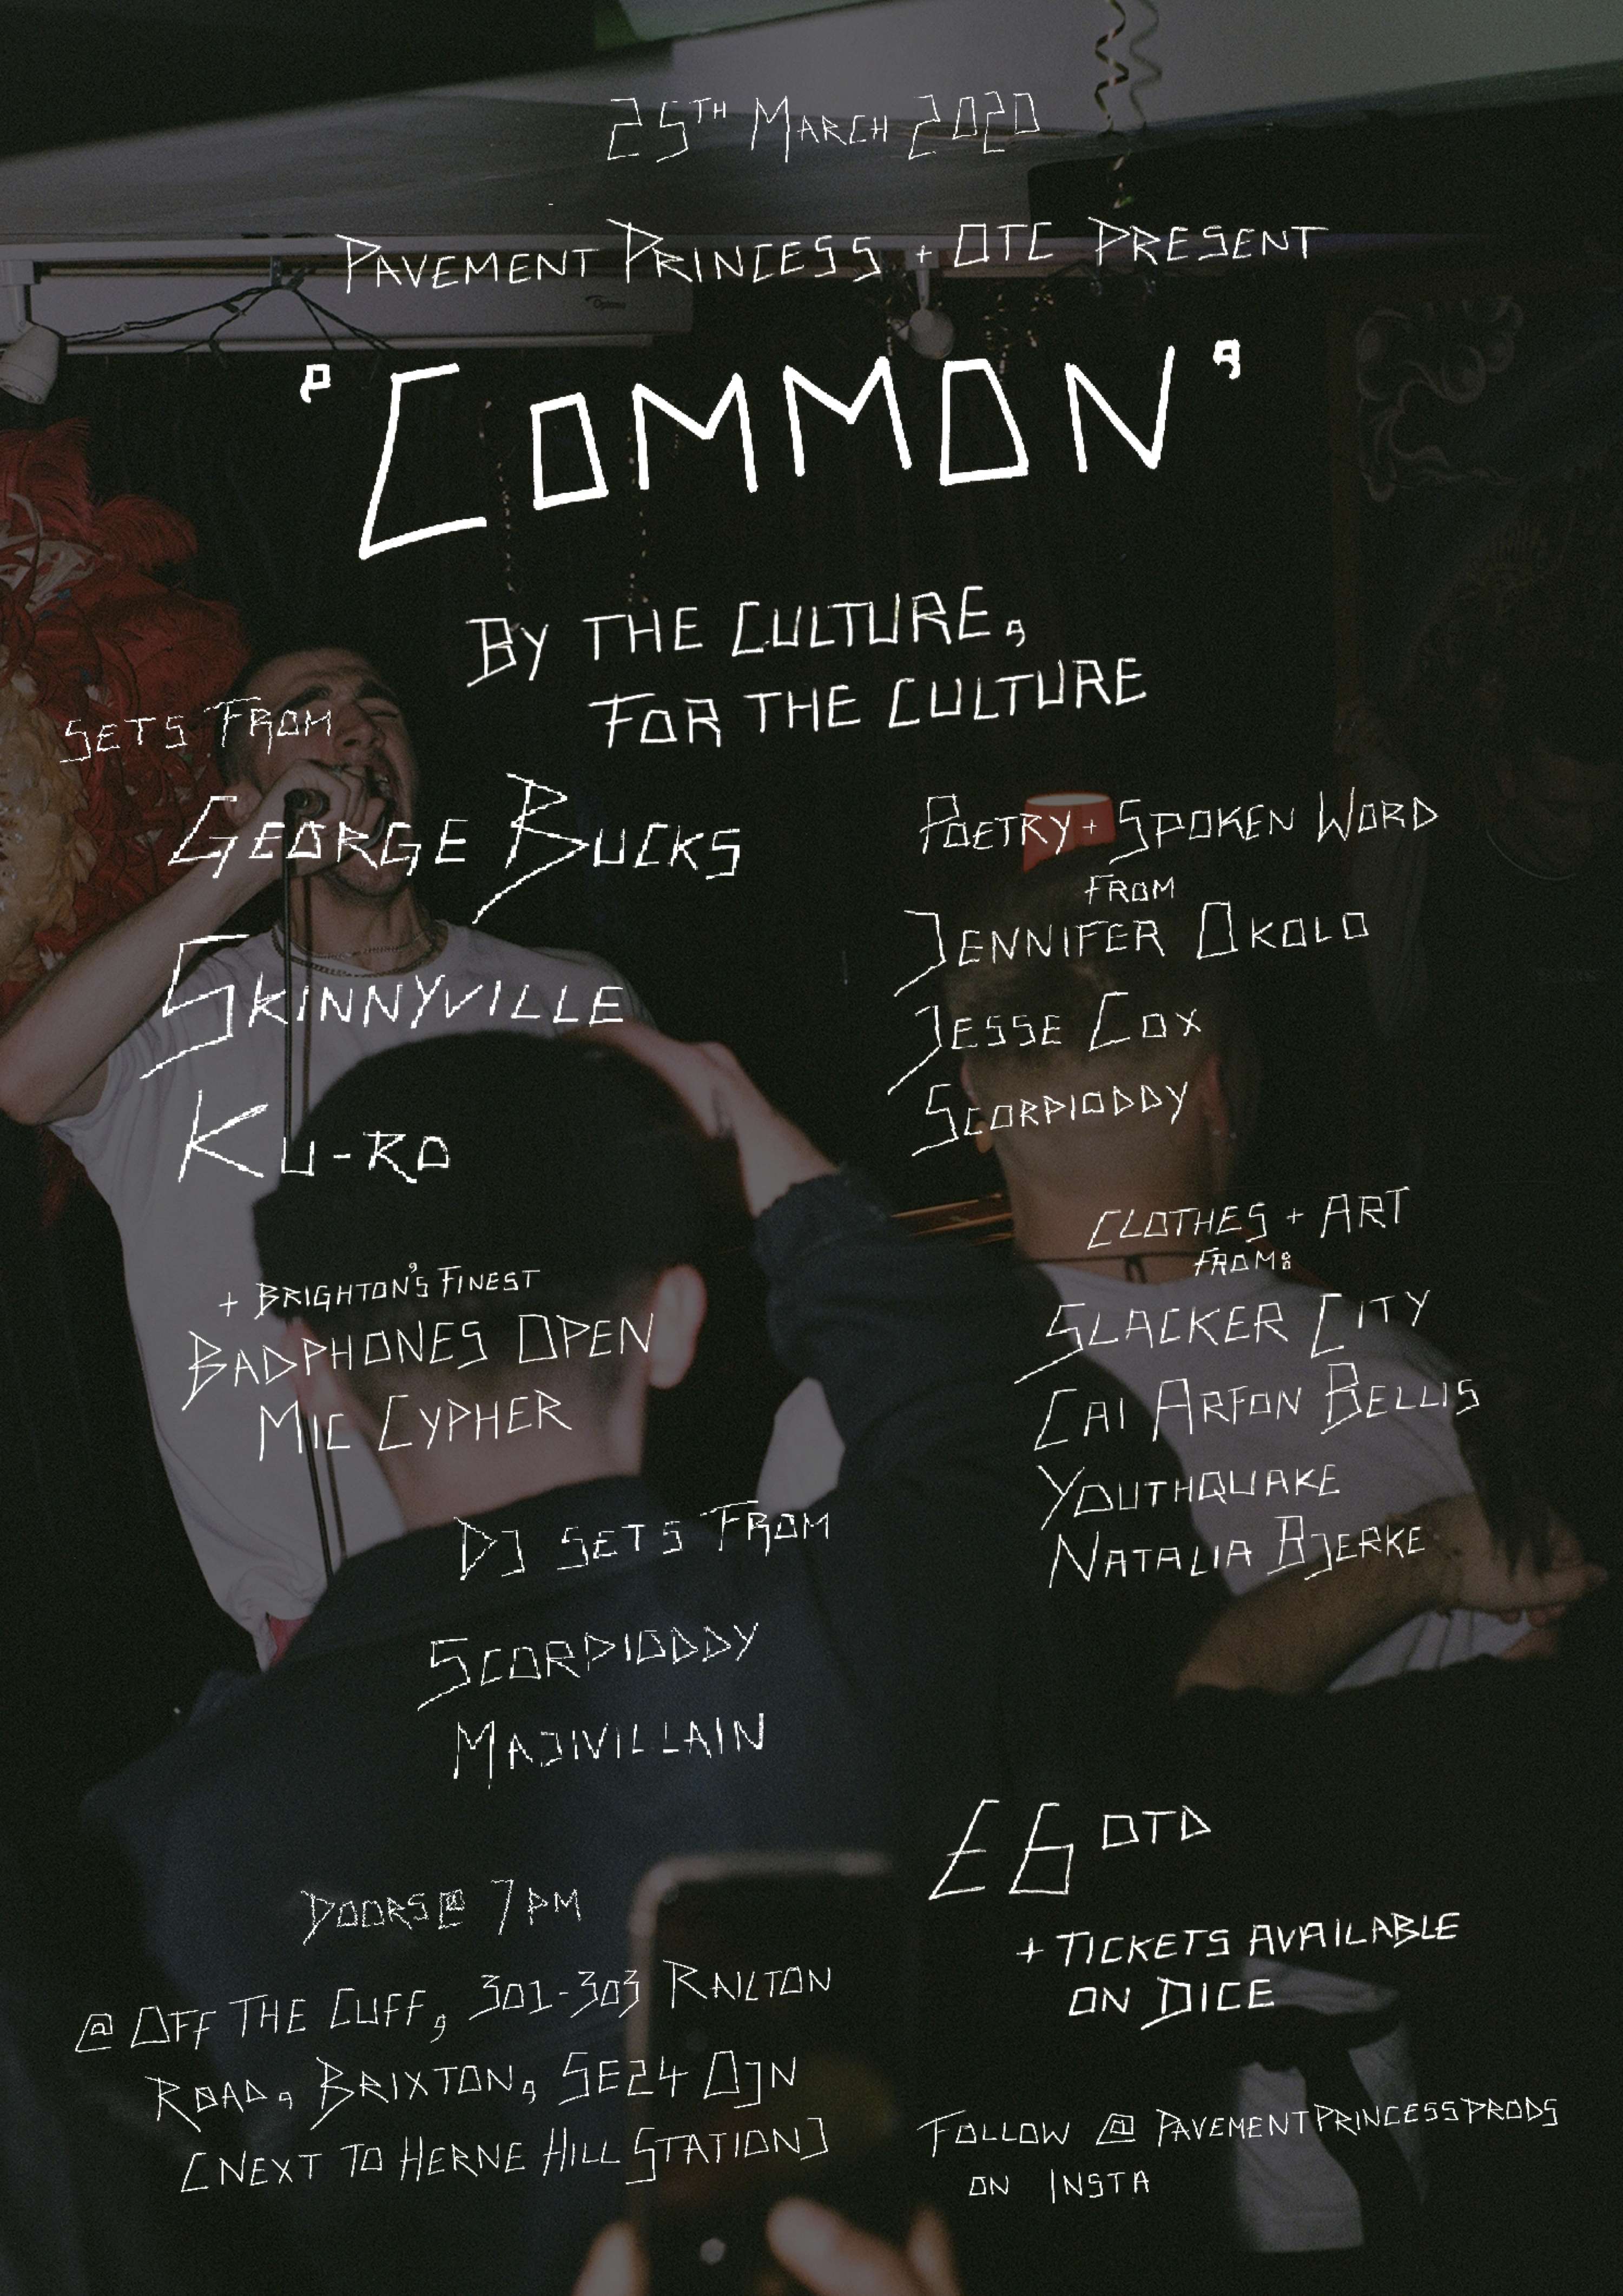 25TH MARCH 2020
PAVEMENT PRINCESS + OTC PRESENT
'COMMON'
BY THE CULTURE,
FOR THE CULTURE
SETS FROM
GEORGE BUCKS
SKINNYVILLE
KU-RO
+ BRIGHTON'S FINEST
BADPHONES OPEN
MIC CYPHER
POETRY + SPOKEN WORD
FROM
JENNIFER OKOLO
JESSE COX
SCORPIODDY
CLOTHES + ART
FROM:
SLACKER CITY
CAI ARFON BELLIS
YOUTHQUAKE
NATALIA BJERKE
DJ SETS FROM
SCORPIODDY
MAJIVILLAIN
£6 OTD
+ TICKETS AVAILABLE
ON DICE
DOORS @ 7PM
@ OFF THE CUFF, 301-303 RAILTON
ROAD, BRIXTON, SE24 0JN
[NEXT TO HERNE HILL STATION]
FOLLOW @ PAVEMENTPRINCESSPRODS
ON INSTA